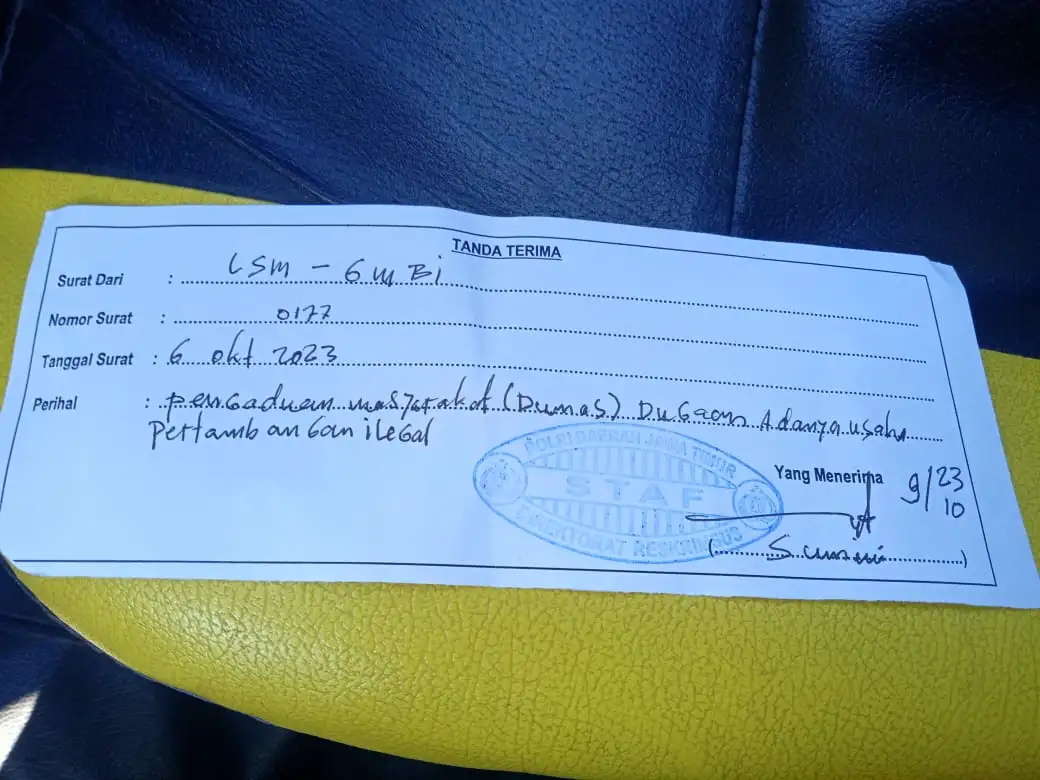 TANDA TERIMA
Surat Dari : LSM - GMBI
Nomor Surat : 0177
Tanggal Surat : 6 okt 2023
Perihal : pengaduan masyarakat (Dumas) Dugaan Adanya usaha
pertambangan ilegal
POLRI DAERAH JAWA TIMUR
STAF
DIREKTORAT RESKRIMSUS
Yang Menerima 9/23
10